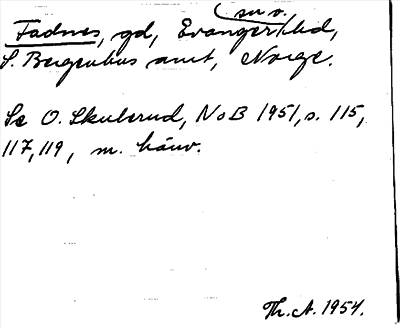 sn v.
Fadnes, gd, Evanger hd,
S. Bergenhus amt, Norge.
Se O. Skulerud, NoB 1951, s. 115,
117, 119, m. hänv.
Th. A. 1954.